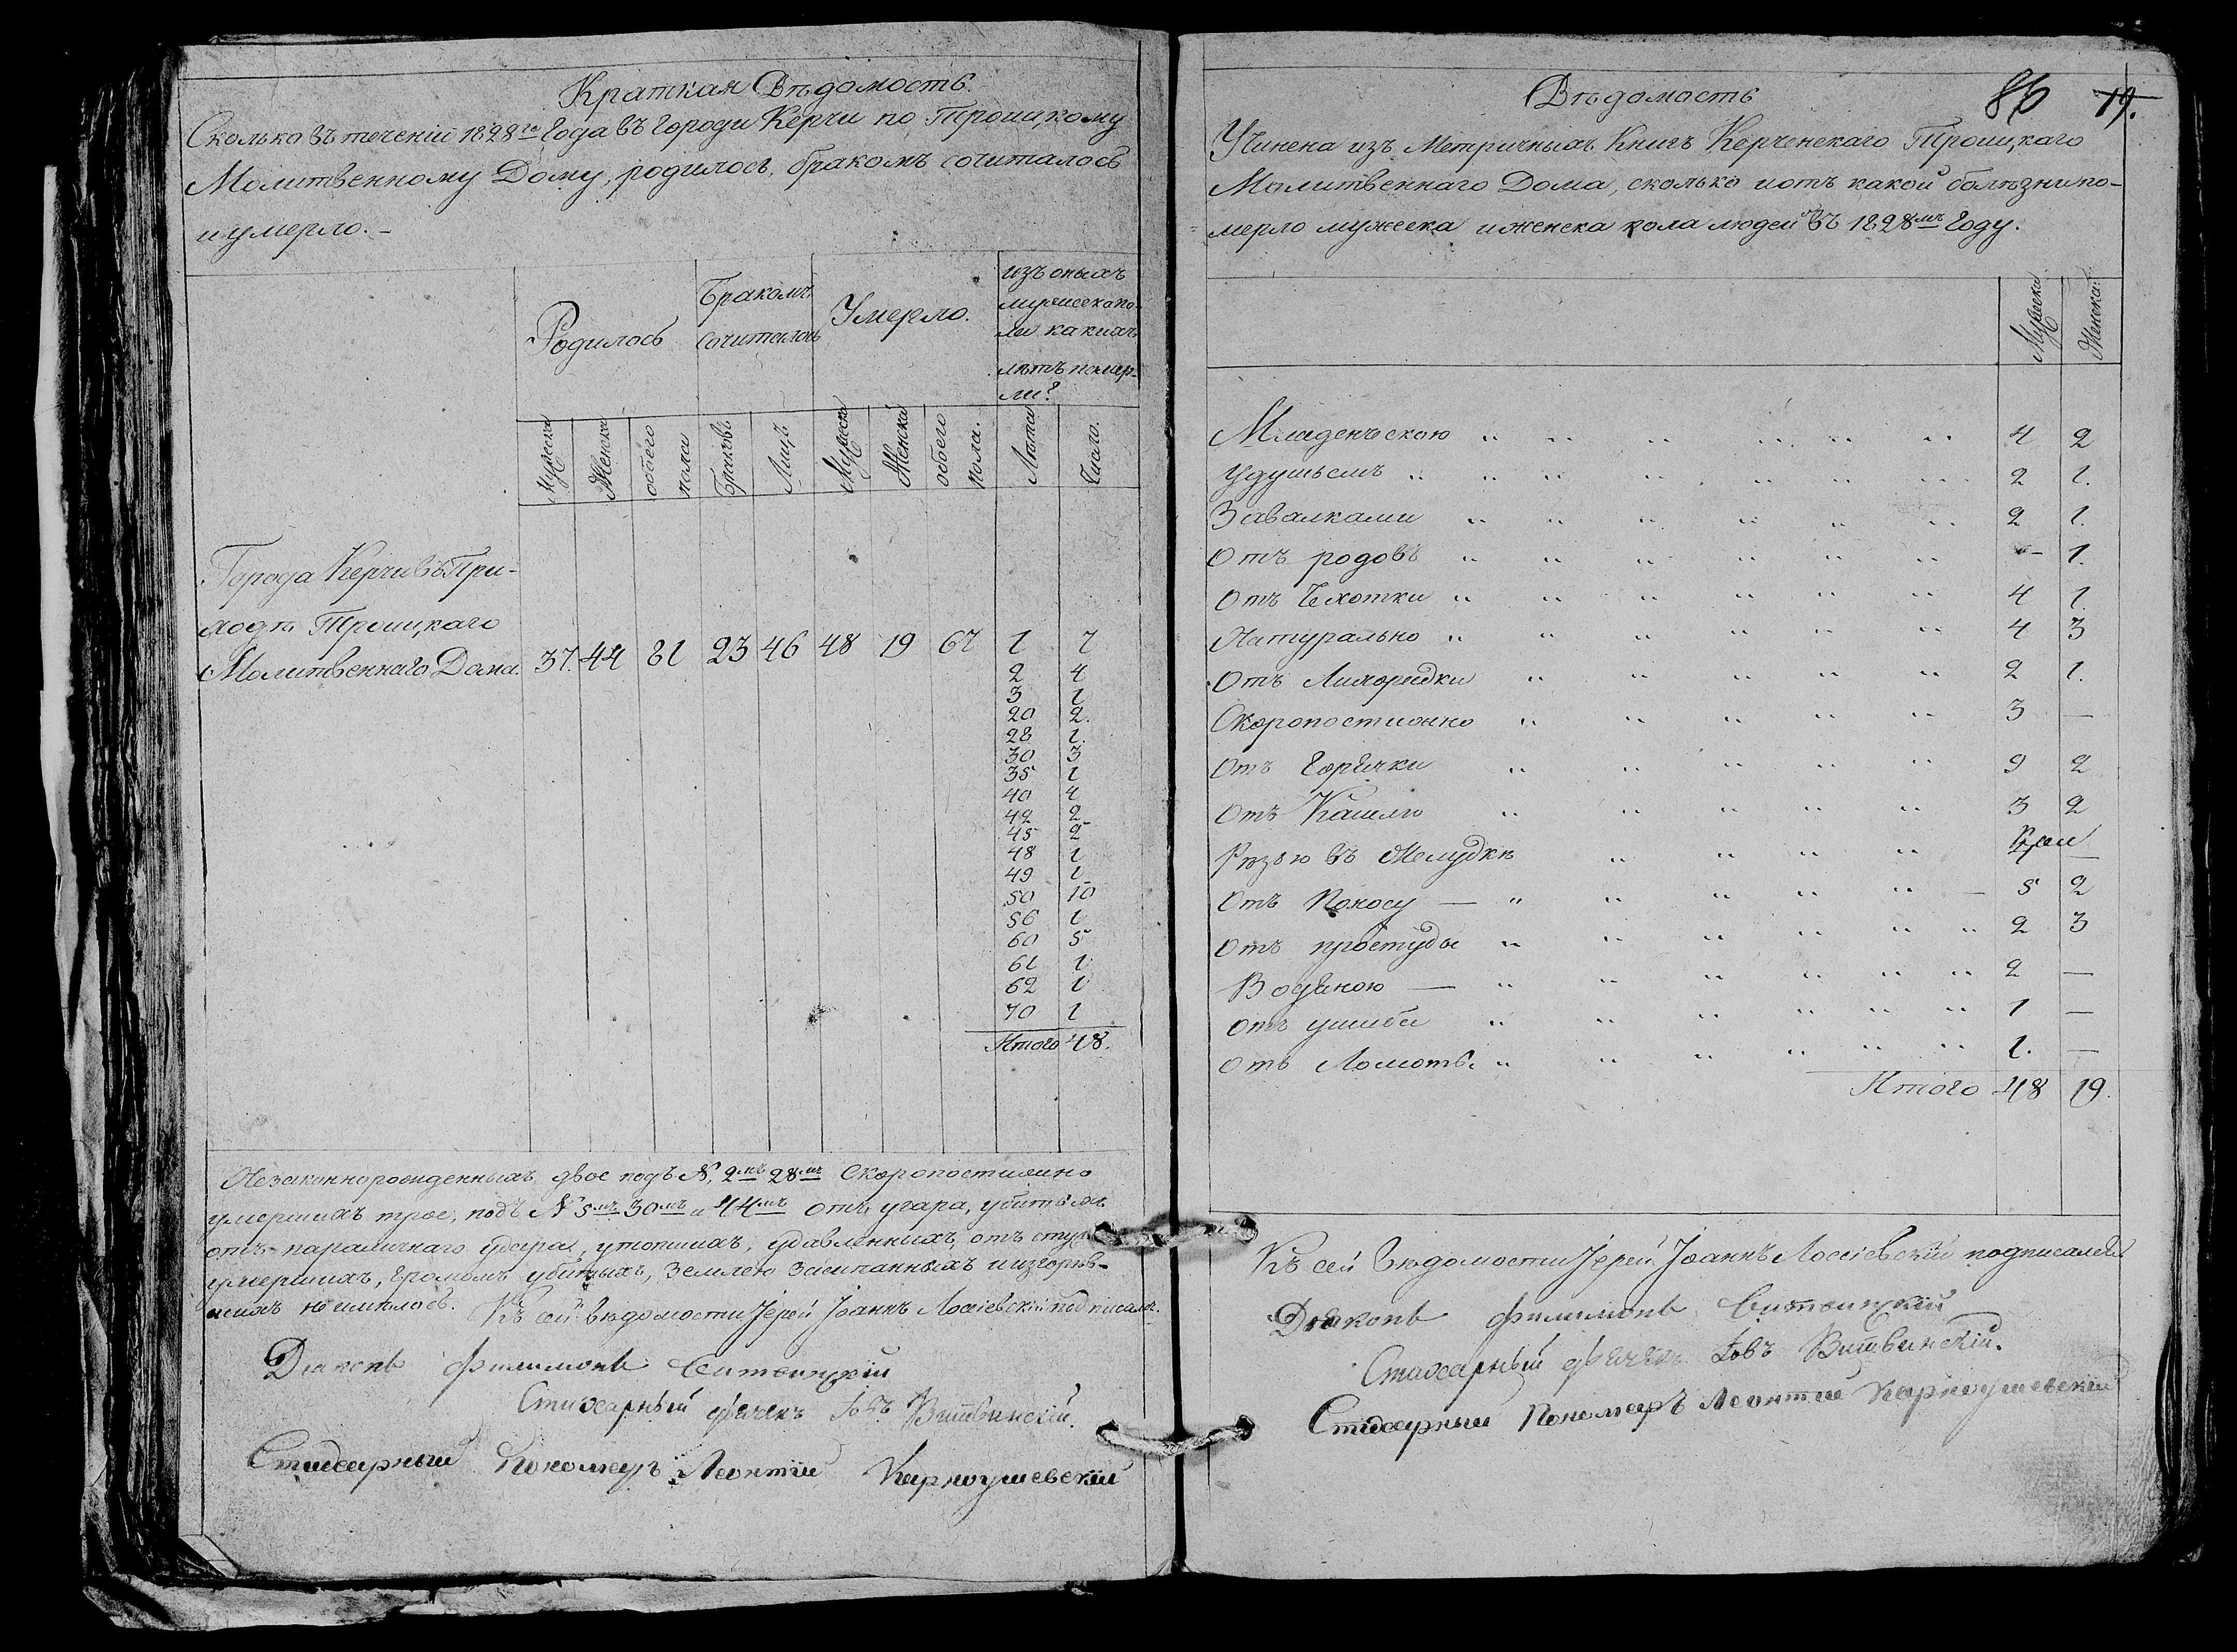 Краткая Вѣдомость.
Сколько въ теченіи 1828го Года въ Городи Керчи по Троицкому
Молитвенному Дому, родилось, бракомъ сочиталось
и умерло. –
Родилось
Бракомъ
сочиталось
Умерло.
изъ оныхъ
мужеска по-
ла какихъ
лѣтъ помер-
ли?
Мужеска
Женска
обоего
пола
Браковъ
Лицъ
Мужеска
Женска
обоего
пола.
Лѣта
Число.
Города Керчи въ При-
ходѣ Троицкаго
Молитвеннаго Дома. 37. 44 81 23 46 48 19 67 1 7
2 4
3 1
20 2.
28 1.
30 3
35 1
40 4
42 2
45 2
48 1
49 1
50 10
56 1
60 5
61 1
62 1
70 1
Итого 48.
Незаконнорожденныхъ двое подъ №, 2мъ 28мъ Скоропостижно
умершихъ трое, подъ № 5мъ 30мъ и 44мъ отъ угара, убитыхъ
отъ параличнаго удара, утопшихъ, удавленныхъ, отъ
умершихъ, громомъ убитыхъ, землею засыпанныхъ и изгорѣв-
шихъ неимѣлось. Къ сей вѣдомости Іерей Іоаннъ Лосіевскій подписалъ.
Діаконъ Филимонъ
Стихарный дьячекъ Іовъ Витвинскій.
Стихарный Пономарь Леонтій Карноушевскій
86 19.
Вѣдомость
Учинена изъ Метричныхъ Книгъ Керченскаго Троицкаго
Молитвеннаго Дома, сколько и отъ какой болѣзни по-
мерло мужеска и женска пола людей въ 1828мъ Году.
Мужеска
Женска.
Младенъскою 4 2
Удушьемъ 2 1.
Завалками 2 1.
Отъ родовъ – 1.
Отъ Чехотки 4 1.
Натурально 4 3
Отъ Лихорадки 2 1.
Скоропостижно 3 —
Отъ Горячки 9 2
Отъ Кашлю 3 2
Рѣзью въ Желудкѣ —
Отъ Поносу — 5 2
Отъ простуды 2 3
Водяною — 2 —
Отъ ушиба 1 —
Отъ Ломотъ. 1. —
Итого 48 19.
Къ сей Вѣдомости Іерей Іоаннъ Лосіевскій подписался
Діаконъ Филимонъ
Стихарный дьячекъ Іовъ Витвинскій.
Стихарный Пономарь Леонтій Карноушевскій